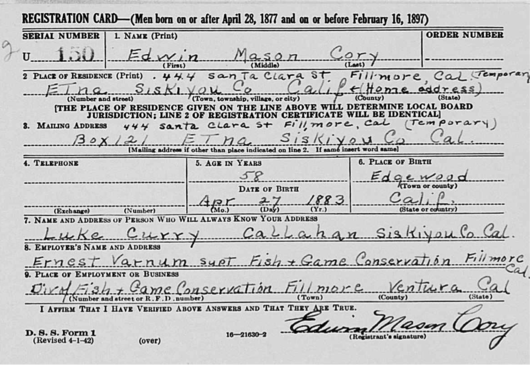 REGISTRATION CARD—(Men born on or after April 28, 1877 and on or before February 16, 1897)
SERIAL NUMBER 1. NAME (Print) ORDER NUMBER
U 150 Edwin Mason Cory
(First) (Middle) (Last)
2 PLACE OF RESIDENCE (Print) 444 Santa Clara St Fillmore, Cal (Temporary
Etna Siskiyou Co Calif (Home address)
(Number and street) (Town, township, village, or city) (County) (State)
[THE PLACE OF RESIDENCE GIVEN ON THE LINE ABOVE WILL DETERMINE LOCAL BOARD
JURISDICTION; LINE 2 OF REGISTRATION CERTIFICATE WILL BE IDENTICAL]
3. MAILING ADDRESS 444 Santa Clara St Fillmore, Cal (Temporary)
Box 121 Etna Siskiyou Co Cal.
[Mailing address if other than place indicated on line 2. If same insert word same]
4. TELEPHONE 5. AGE IN YEARS 6. PLACE OF BIRTH
58 Edgewood
DATE OF BIRTH (Town or county)
Apr 27 1883 Calif.
(Exchange) (Number) (Mo.) (Day) (Yr.) (State or country)
7. NAME AND ADDRESS OF PERSON WHO WILL ALWAYS KNOW YOUR ADDRESS
Luke Curry Callahan Siskiyou Co Cal.
8. EMPLOYER'S NAME AND ADDRESS
Ernest Varnum supt Fish + Game Conservation Fillmore Cal.
9. PLACE OF EMPLOYMENT OR BUSINESS
Div of Fish + Game Conservation Fillmore Ventura Cal
(Number and street or R. F. D. number) (Town) (County) (State)
I AFFIRM THAT I HAVE VERIFIED ABOVE ANSWERS AND THAT THEY ARE TRUE.
D. S. S. Form 1
(Revised 4-1-42) (over) 16—21630-2 Edwin Mason Cory
(Registrant's signature)